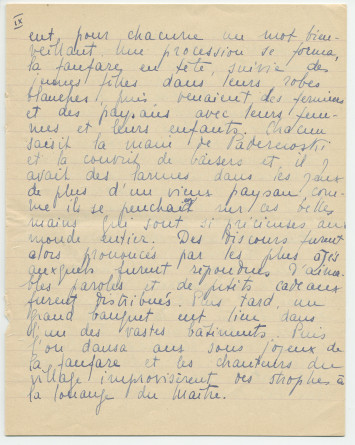 IX
eut pour chacune un mot bien-
veillant. Une procession se forma,
la fanfare en tête, suivie des
jeunes filles dans leurs robes
blanches, puis venaient des fermiers
et des paysans avec leurs fem-
mes et leurs enfants. Chacun
saisit la main de Paderewski
et la couvrit de baisers et il y
avait des larmes dans les yeux
de plus d'un vieux paysan com-
me ils se penchait sur ces belles
mains qui sont si précieuses au
monde entier. Des discours furent
alors prononcés par les plus âgés
auxquels furent répondues d'aima-
bles paroles et de petits cadeaux
furent distribués. Plus tard, un
grand banquet eut lieu dans
l'un des vastes bâtiments. Puis
l'on dansa aux sons joyeux de
la fanfare et les chanteurs du
village improvisèrent des strophes à
la louange du Maître.